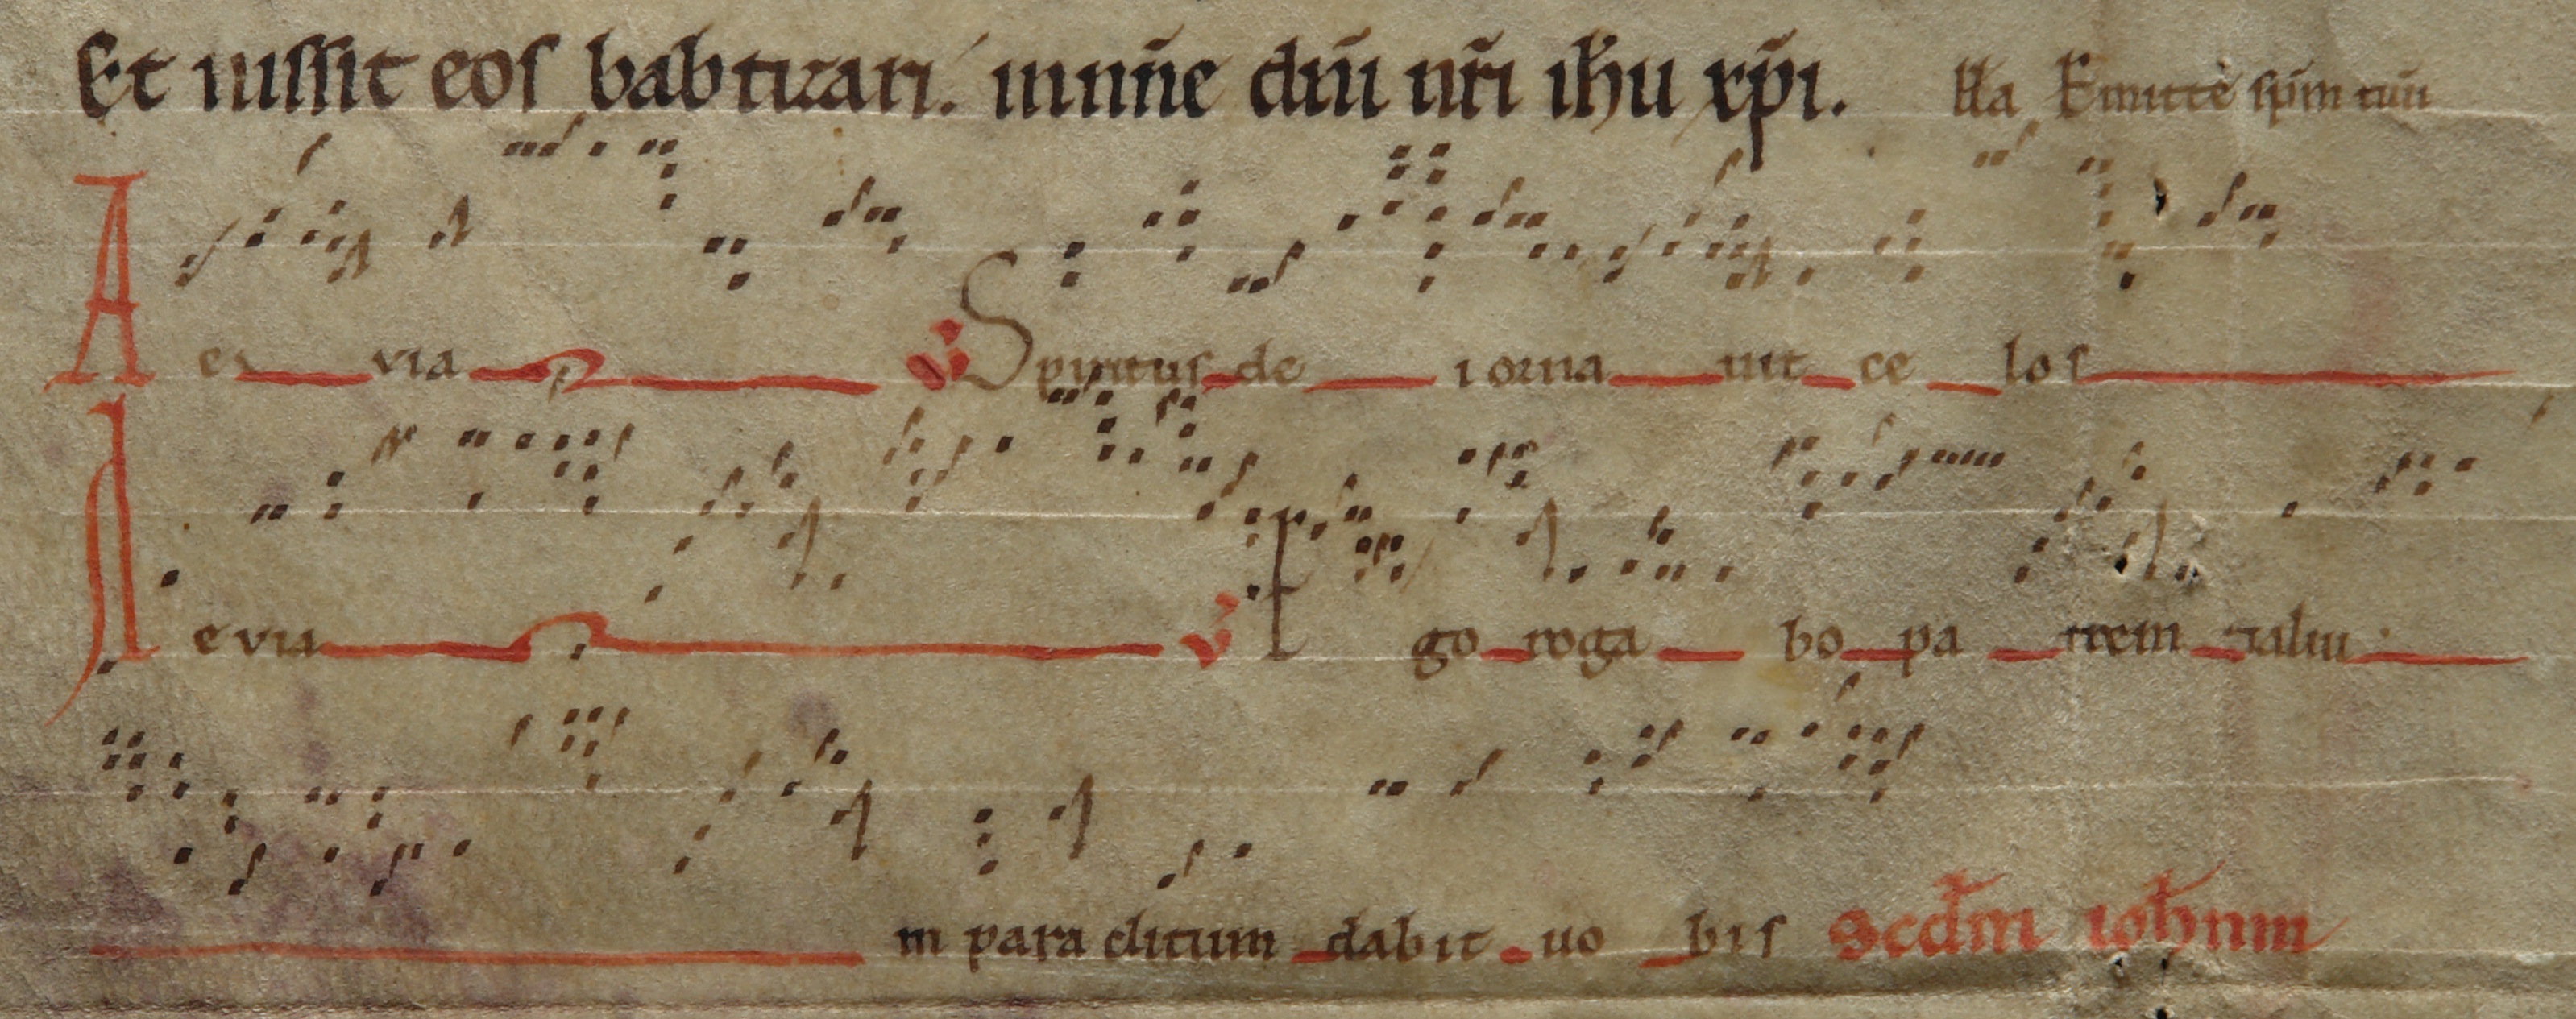 Et iussit eos babtizari. innn̄e dn̄i nr̄i ihu xp̄i. ll̄a Emitte sp̄m tuū
A e via ℣ Spiritus de i orna uit ce los
A evia ℣ Ego roga bo pa trem aliū
m para clitum dabit uo bis Scdm iohnm